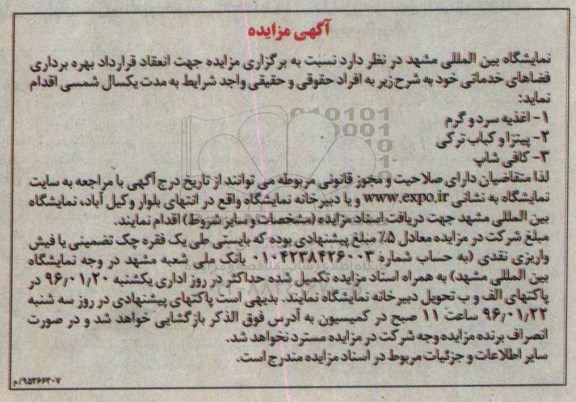 آگهی مزایده
نمایشگاه بین المللی مشهد در نظر دارد نسبت به برگزاری مزایده جهت انعقاد قرارداد بهره برداری
فضاهای خدماتی خود به شرح زیر به افراد حقوقی و حقیقی واجد شرایط به مدت یکسال شمسی اقدام
نماید:
۱- اغذیه سرد و گرم
۲- پیتزا و کباب ترکی
۳- کافی شاپ
لذا متقاضیان دارای صلاحیت و مجوز قانونی مربوطه می توانند از تاریخ درج آگهی با مراجعه به سایت
نمایشگاه به نشانی www.expo.ir و یا دبیرخانه نمایشگاه واقع در انتهای بلوار وکیل آباد، نمایشگاه
بین المللی مشهد جهت دریافت اسناد مزایده (مشخصات و سایر شروط) اقدام نمایند.
مبلغ شرکت در مزایده معادل ۵٪ مبلغ پیشنهادی بوده که بایستی طی یک فقره چک تضمینی یا فیش
واریزی نقدی (به حساب شماره ۰۱۰۴۲۳۸۴۲۶۰۰۳ بانک ملی شعبه مشهد در وجه نمایشگاه
بین المللی مشهد) به همراه اسناد مزایده تکمیل شده حداکثر در روز اداری یکشنبه ۹۶/۰۱/۲۰ در
پاکتهای الف و ب تحویل دبیرخانه نمایشگاه نمایند. بدیهی است پاکتهای پیشنهادی در روز سه شنبه
۹۶/۰۱/۲۲ ساعت ۱۱ صبح در کمیسیون به آدرس فوق الذکر بازگشایی خواهد شد و در صورت
انصراف برنده مزایده وجه شرکت در مزایده مسترد نخواهد شد.
سایر اطلاعات و جزئیات مربوط در اسناد مزایده مندرج است.
۹۵۲۶۶۳۰۷/م